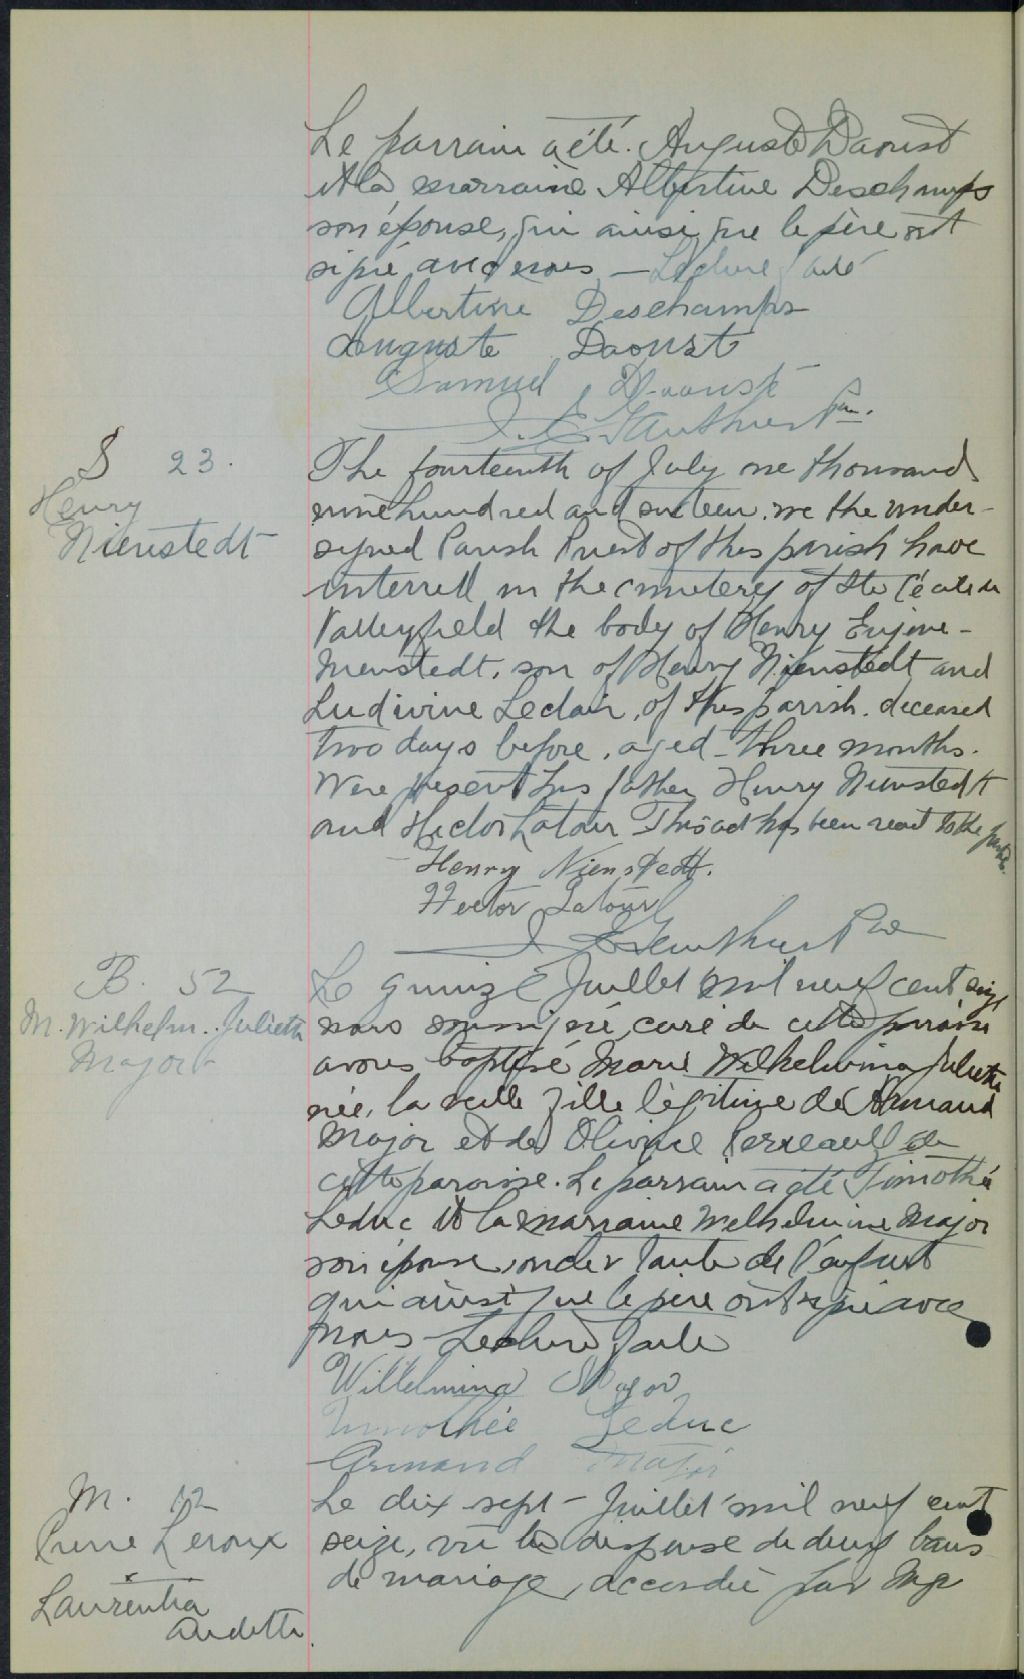 Le parrain a été Auguste Daoust
et la marraine Albertine Deschamps
son épouse, qui ainsi que le père ont
signé avec nous — Lecture faite
Albertine Deschamps
Auguste Daoust
Samuel Daoust
J. E. Gauthier Ptre.
S 23.
Henry
Nienstedt
The fourteenth of July one thousand
nine hundred and sixteen. we the under-
signed Parish Priest of this parish have
interred in the cimetery of Ste Cécile de
Valleyfield the body of Henry Eugène-
Nienstedt, son of Henry Nienstedt and
Ludivine Leclair, of this parish. deceased
two days before, aged three months.
Were present his father Henry Nienstedt
and Hector Latour This act has been read to the
Henry Nienstedt.
Hector Latour
J. E. Gauthier Ptre
B. 52
M. Wilhelm. Juliette
Major
Le quinze Juillet mil neuf cent seize
nous soussigné, curé de cette paroisse
avons baptisé Marie Wilhelmina Juliette
née, la veille fille légitime de Armand
Major et de Olivine Perreault de
cette paroisse. Le parrain a été Timothé
Leduc et la marraine Wilhelmine Major
son épouse, oncle & tante de l'enfant
qui ainsi que le père ont signé avec
nous — Lecture faite
Wilhelmina Major
Timothée Leduc
Armand Major
M. 12
Pierre Leroux
x
Laurentia
Audette.
Le dix sept — Juillet mil neuf cent
seize, vu la dispense de deux bans
de mariage, accordée par Mgr